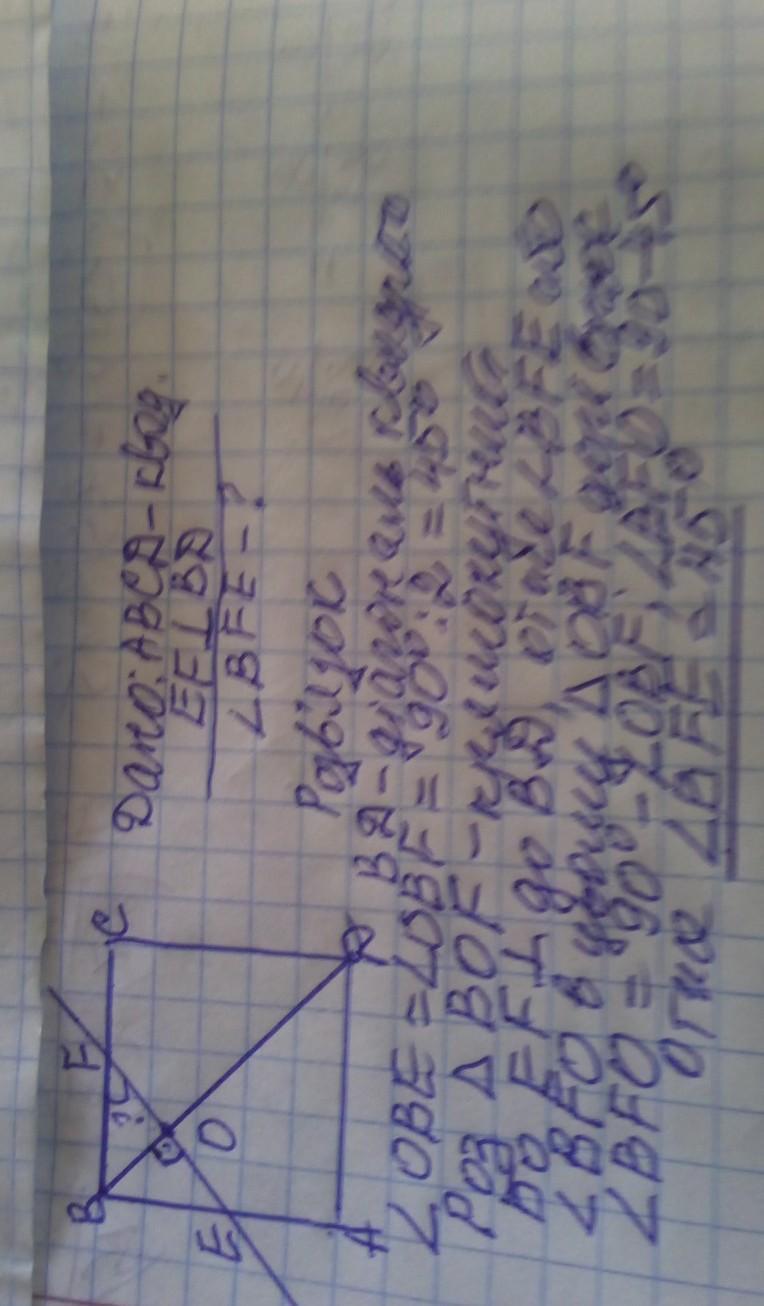 Дано: ABCD - квад.
EF⊥BD
∠BFE - ?
B
F
C
?
O
E
A
D
Розв'язок
BD - діагональ квадрата
∠OBE = ∠OBF = 90° : 2 = 45°
Роз △ BOF - прямокутний
Бо EF ⊥ до BD, отже ∠BFE або
∠BFO в цьому △ OBF дорівнює
∠BFO = 90° - ∠OBF; ∠BFO = 90 - 45°
отже ∠BFE = 45°